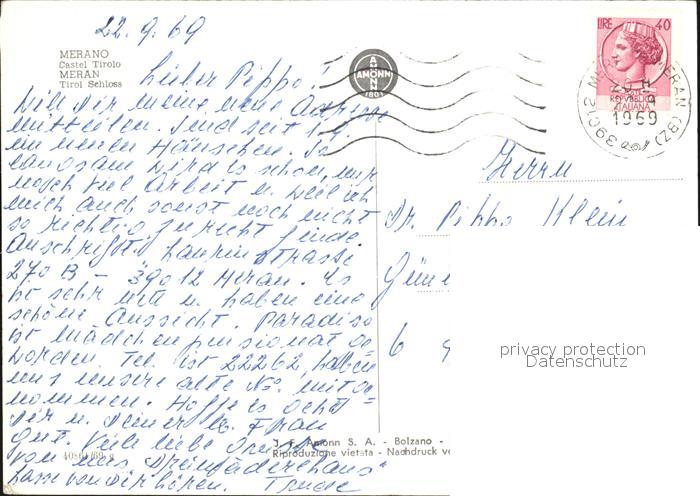 22. 9. 69
MERANO
Castel Tirolo
MERAN
Tirol Schloss
AMONN
AMONN
1802
LIRE 40
REPVBBLICA
ITALIANA
MERAN (BZ)
1969
39012
Lieber Pippo!
Will Dir meine neue Adresse
mitteilen. Sind seit 1.4.
im neuen Häuschen. So
langsam wird es schön, nur
noch viel Arbeit u. weil ich
mich auch sonst noch nicht
so richtig zurecht finde.
Anschrift: Laurinstrasse
270 B - 39012 Meran. Es
ist sehr nett u. haben eine
schöne Aussicht. Paradiso
ist Mädchenpensionat ge-
worden. Tel. ist 22262, haben
uns unsere alte No. mitge-
nommen. Hoffe es geht
Dir u. Deiner lb. Frau
gut. Viele liebe Grüsse
von uns "Dreimäderlhaus"
Lasse von Dir hören. Trude
Herrn
Dr. Pippo Klein
6
J. F. Amonn S. A. - Bolzano -
Riproduzione vietata - Nachdruck
privacy protection
Datenschutz